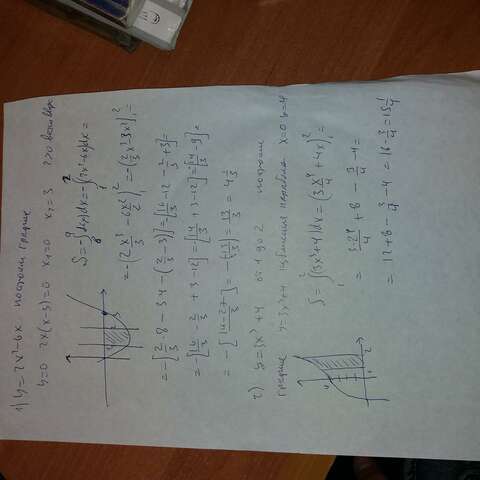 1) y=2x²-6x построим график
y=0 2x(x-3)=0 x₁=0 x₂=3 2>0 ветви вверх
S=-∫f(x)dx=-∫(2x²-6x)dx=
=-(2x³/3-6x²/2)|₁²=-(2/3x³-3x²)|₁²=
=-[2/3·8-3·4-(2/3-3)]=-[16/3-12-2/3+3]=
=-[16/3-2/3+3-12]=-[14/3+3-12]=-[14/3-9]=
=-[(14-27)/3]=-(-13/3)=13/3=4 1/3
2) y=3x³+4 от 1 до 2 построим
график y=3x³+4 кубичная парабола x=0 y=4
S=∫₁²(3x³+4)dx=(3x⁴/4+4x)|₁²=
=3·2⁴/4+8-3/4-4=
=12+8-3/4-4=16-3/4=15 1/4